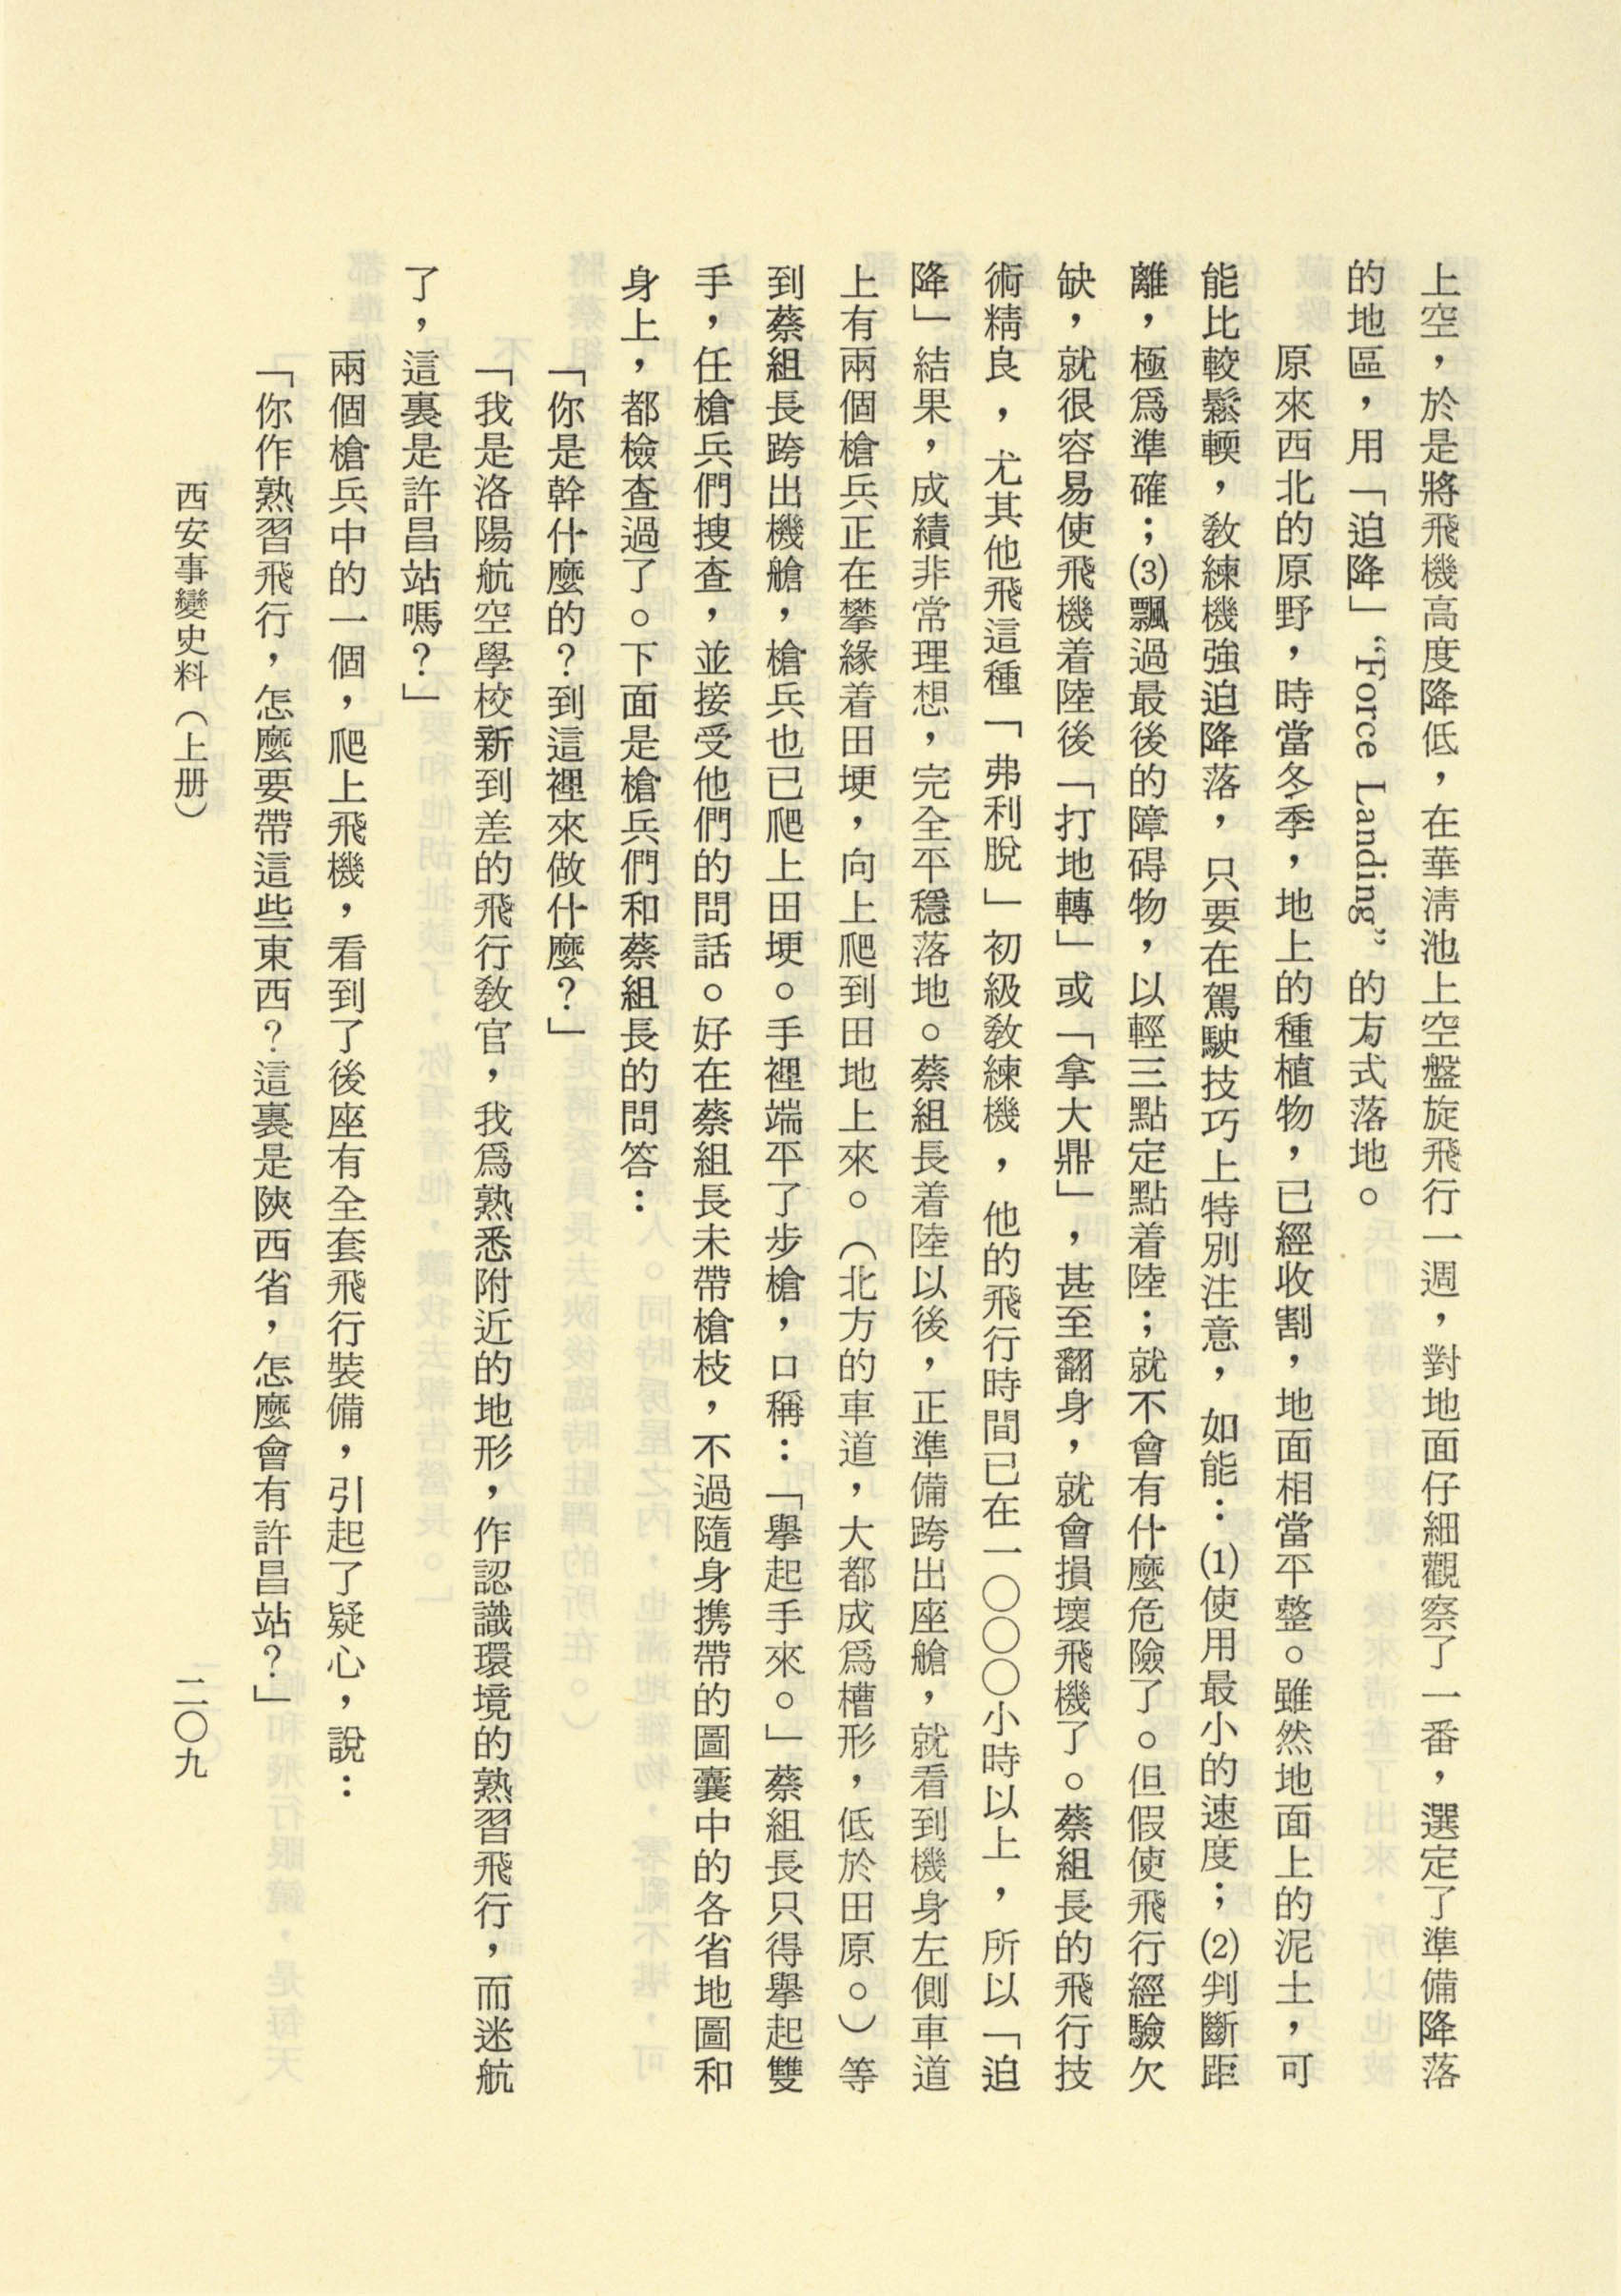 上空，於是將飛機高度降低，在華淸池上空盤旋飛行一週，對地面仔細觀察了一番，選定了準備降落
的地區，用「迫降」“Force Landing”的方式落地。
原來西北的原野，時當冬季，地上的種植物，已經收割，地面相當平整。雖然地面上的泥土，可
能比較鬆輭，教練機強迫降落，只要在駕駛技巧上特別注意，如能：⑴使用最小的速度；⑵判斷距
離，極爲準確；⑶飄過最後的障碍物，以輕三點定點着陸；就不會有什麼危險了。但假使飛行經驗欠
缺，就很容易使飛機着陸後「打地轉」或「拿大鼎」，甚至翻身，就會損壞飛機了。蔡組長的飛行技
術精良，尤其他飛這種「弗利脫」初級教練機，他的飛行時間已在一〇〇〇小時以上，所以「迫
降」結果，成績非常理想，完全平穩落地。蔡組長着陸以後，正準備跨出座艙，就看到機身左側車道
上有兩個槍兵正在攀緣着田埂，向上爬到田地上來。（北方的車道，大都成爲槽形，低於田原。）等
到蔡組長跨出機艙，槍兵也已爬上田埂。手裡端平了步槍，口稱：「舉起手來。」蔡組長只得舉起雙
手，任槍兵們搜查，並接受他們的問話。好在蔡組長未帶槍枝，不過隨身携帶的圖囊中的各省地圖和
身上，都檢查過了。下面是槍兵們和蔡組長的問答：
「你是幹什麼的？到這裡來做什麼？」
「我是洛陽航空學校新到差的飛行教官，我爲熟悉附近的地形，作認識環境的熟習飛行，而迷航
了，這裏是許昌站嗎？」
兩個槍兵中的一個，爬上飛機，看到了後座有全套飛行裝備，引起了疑心，說：
「你作熟習飛行，怎麼要帶這些東西？這裏是陝西省，怎麼會有許昌站？」
西安事變史料（上册）
二〇九